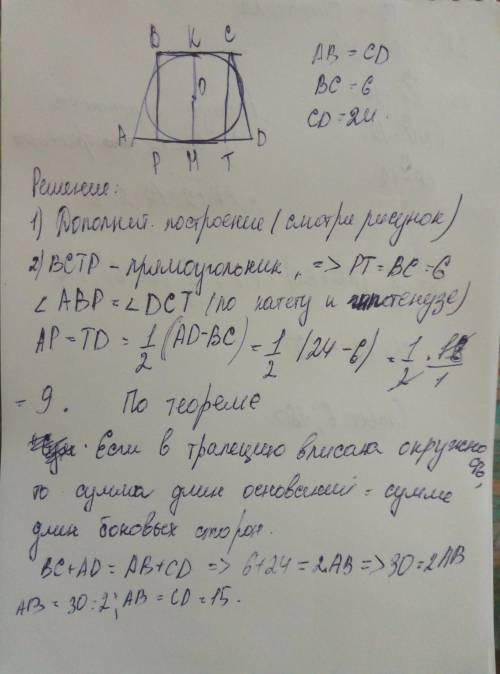 B K C
O
A D
P M T
AB = CD
BC = 6
CD = 24.
Решение:
1) Дополнит. построение (смотри рисунок)
2) BCTP - прямоугольник, => PT = BC = 6
∠ ABP = ∠ DCT (по катету и гипотенузе)
AP = TD = 1/2 (AD-BC) = 1/2 (24-6) = 1/2 · 18/1
= 9. По теореме
Если в трапецию вписана окружность,
то сумма длин оснований = сумме
длин боковых сторон.
BC + AD = AB + CD => 6+24 = 2AB => 30 = 2AB
AB = 30:2; AB = CD = 15.